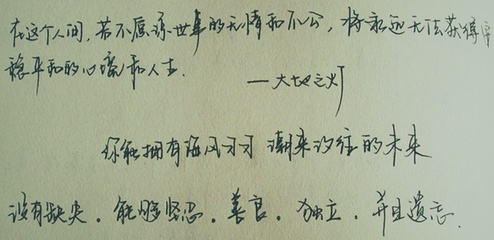 在这个人间，若不原谅世事的无情和不公，将永远无法获得安
稳平和的心境和人生.
——大地之灯
你能拥有海风习习 潮来汐往的未来
没有缺失. 能够坚忍. 善良. 独立. 并且遗忘.